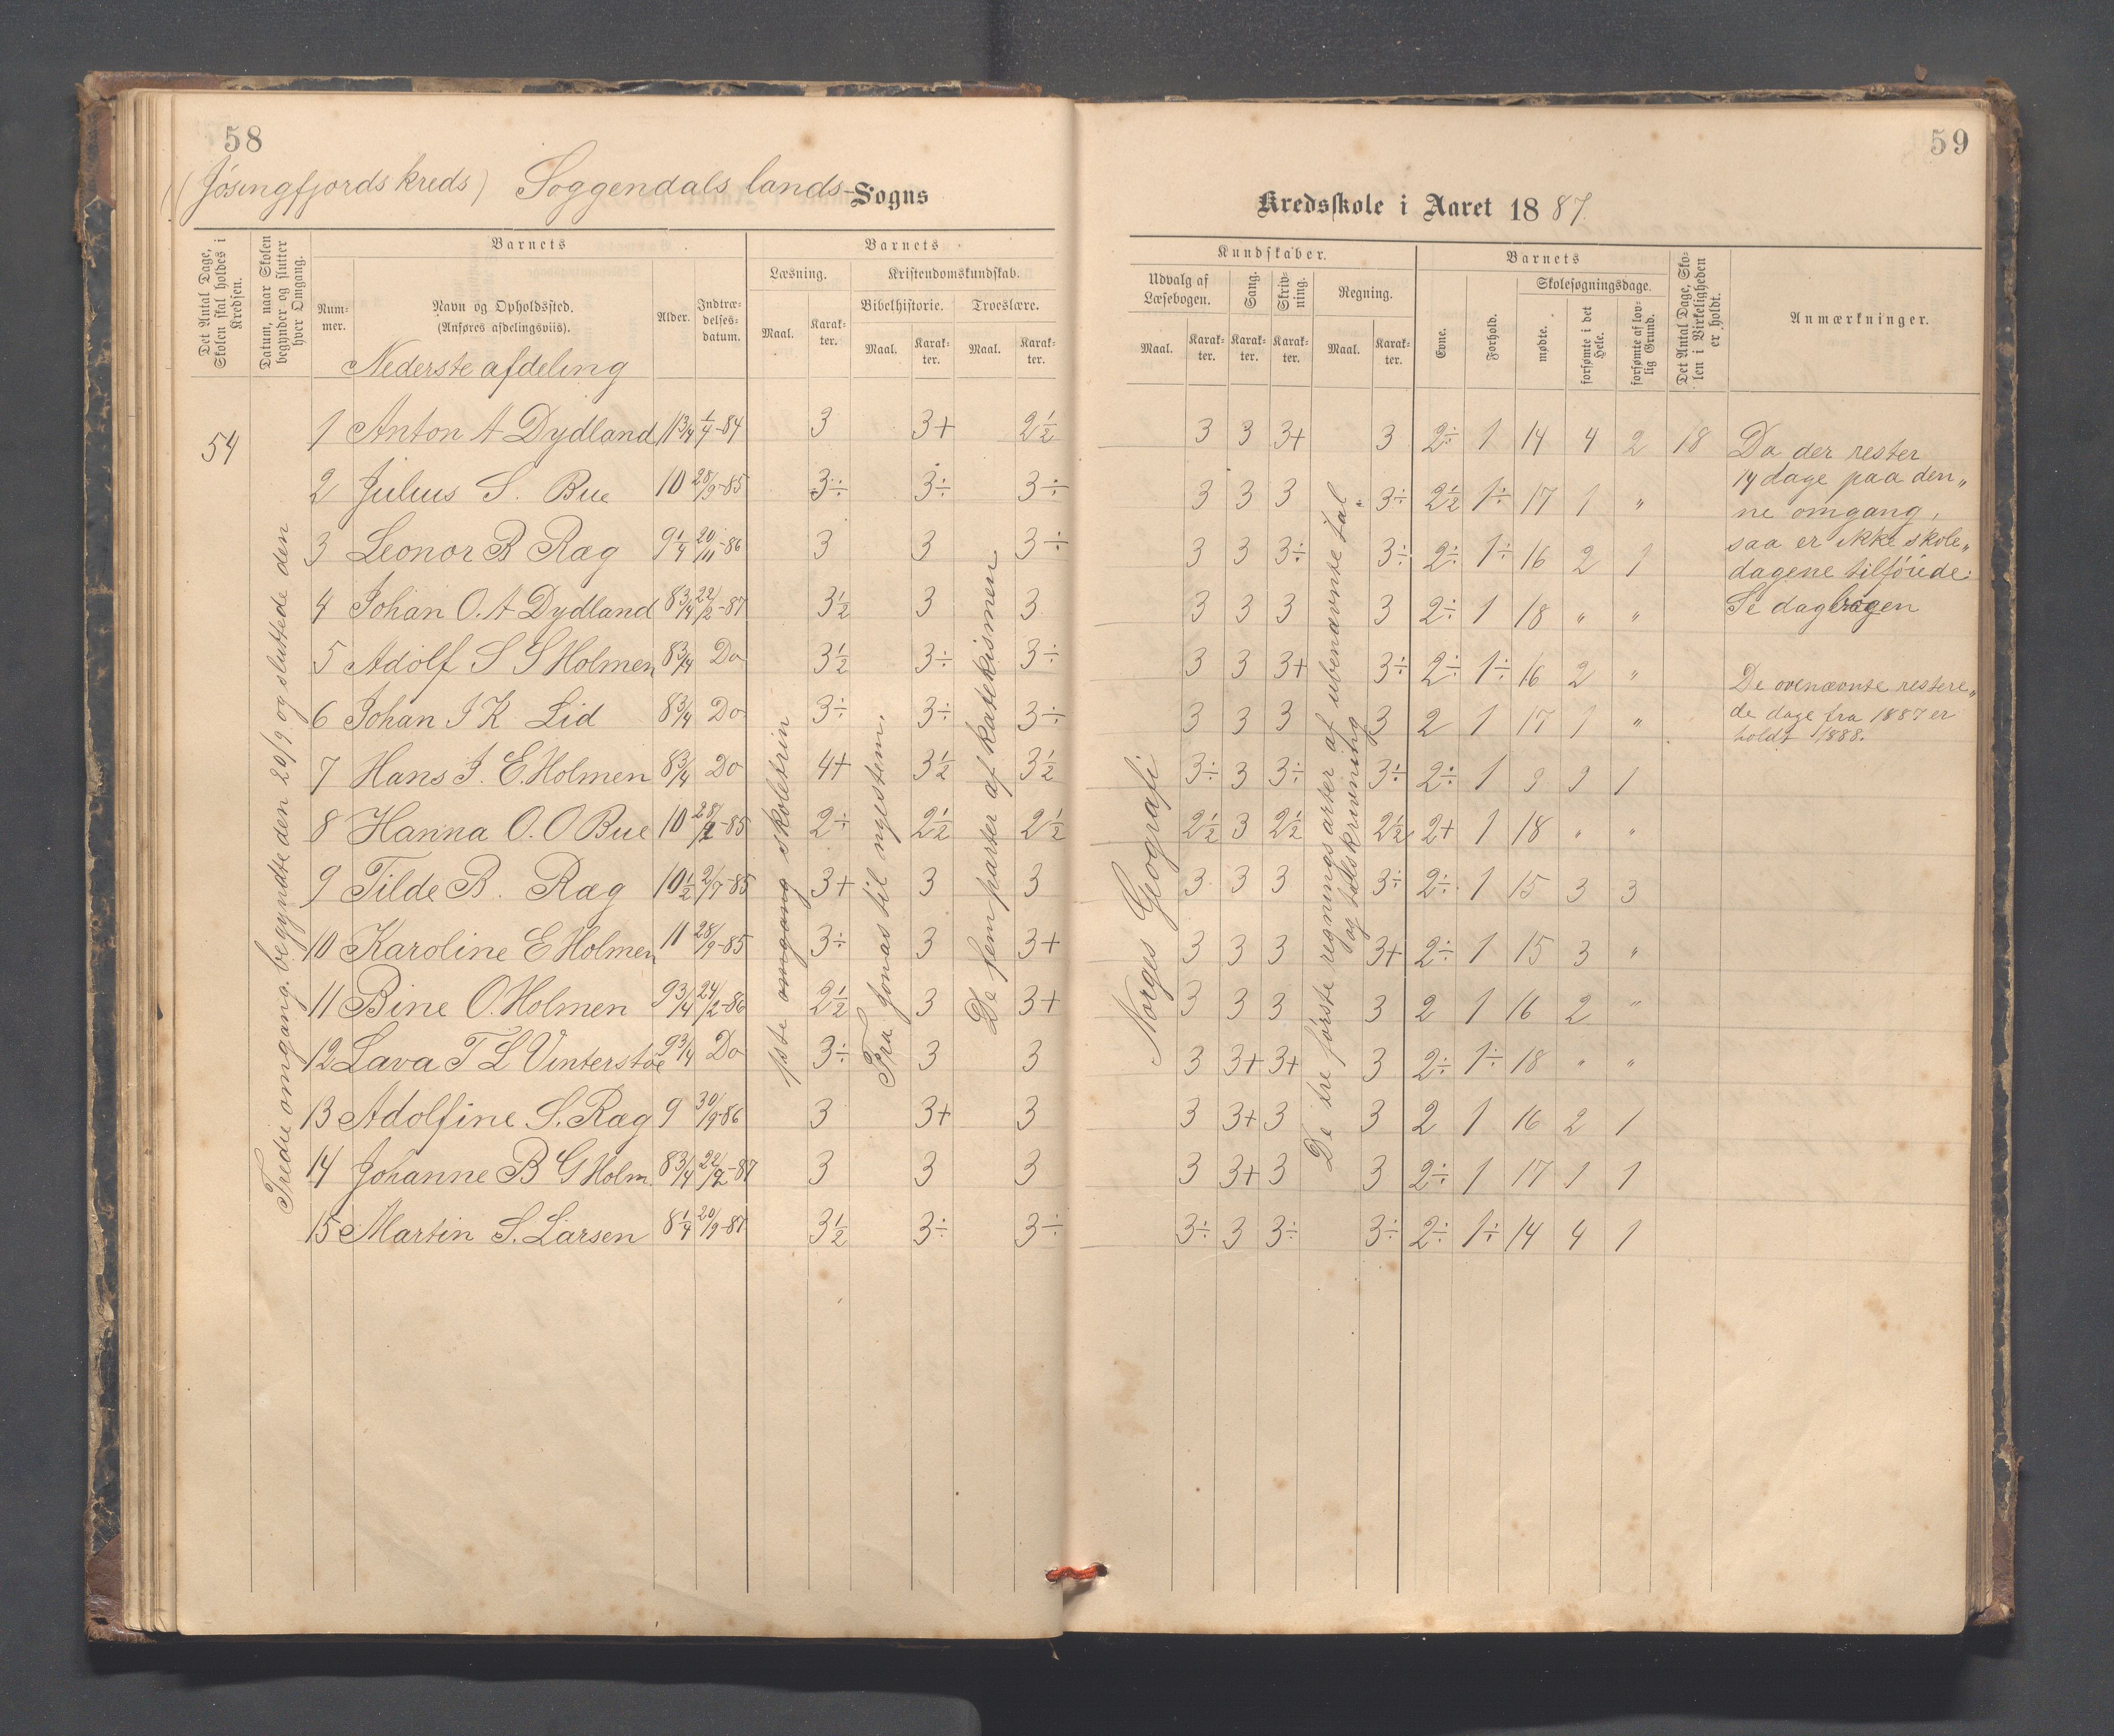 58
(Jøsingfjords kreds) Soggendals lands- Sogns
Det Antal Dage, Skolen skal holdes i Kredsen.
Datum, naar Skolen begynder og slutter hver Omgang.
Barnets
Num-mer.
Navn og Opholdssted.
(Anføres afdelingsviis).
Alder.
Indtræ-delses-datum.
Barnets
Læsning.
Kristendomskundskab.
Bibelhistorie.
Troeslære.
Maal. Karak-ter. Maal. Karak-ter. Maal. Karak-ter.
Nederste afdeling
54
Tredie omgang begyndte den 20/9 og sluttede den
1 Anton A Dydland 11 3/4 1/4-84 3 3+ 2 1/2
2 Julius S. Bue 10 28/9-85 3÷ 3÷ 3÷
3 Leonor B Ræg 9 1/4 20/11-86 3 3 3÷
4 Johan O. A Dydland 8 3/4 22/2-87 3 1/2 3 3
5 Adolf S S Holmen 8 3/4 Do 3 1/2 3÷ 3÷
6 Johan J K Lid 8 3/4 Do 3÷ 3÷ 3÷
7 Hans J. E. Holmen 8 3/4 Do 4+ 3 1/2 3 1/2
8 Hanna O. O Bue 10 28/9-85 2÷ 2 1/2 2 1/2
9 Tilde B. Ræg 10 1/2 2/7-85 3+ 3 3
10 Karoline E Holmen 11 28/9-85 3÷ 3 3+
11 Bine O. Holmen 9 3/4 24/2-86 2 1/2 3 3+
12 Lava T L Vinterstøe 9 3/4 Do 3÷ 3 3
13 Adolfine S. Ræg 9 30/9-86 3 3+ 3
14 Johanne B G Holm. 8 3/4 22/2-87 3 3 3
15 Martin S. Larsen 8 1/4 20/9-87 3 1/2 3÷ 3÷
1ste omgang skoletrin
Fra Jonas til nytestem.
De fem parter af katekismen
59
Kredsskole i Aaret 1887.
Kundskaber.
Udvalg af Læsebogen.
Sang.
Skriv-ning.
Regning.
Maal. Karak-ter. Karak-ter. Karak-ter. Maal. Karak-ter.
Barnets
Evne.
Forhold.
Skolesøgningsdage.
mødte.
forsømte i det Hele.
forsømte af lov-lig Grund.
Det Antal Dage, Sko-len i Virkeligheden er holdt.
Anmærkninger.
3 3 3+ 3 2÷ 1 14 4 2 18
3 3 3 3÷ 2 1/2 1÷ 17 1 "
3 3 3÷ 3÷ 2÷ 1÷ 16 2 1
3 3 3 3 2÷ 1 18 " "
3 3 3+ 3÷ 2÷ 1÷ 16 2 "
3 3 3 3 2 1 17 1 "
3÷ 3 3÷ 3÷ 2÷ 1 9 9 1
2 1/2 3 2 1/2 2 1/2 2+ 1 18 " "
3 3 3 3÷ 2÷ 1 15 3 3
3 3 3 3+ 2÷ 1 15 3 "
3 3 3 3 2 1 16 2 "
3 3+ 3+ 3 2÷ 1÷ 18 " "
3 3+ 3 3 2 1 16 2 1
3 3+ 3 3 2÷ 1 17 1 1
3÷ 3 3÷ 3÷ 2÷ 1÷ 14 4 1
Norges Geografi
De tre første regningsarter af ubenævnte tal
og talskrivning
Da der rester
14 dage paa den„
ne omgang,
saa er ikke skole„
dagene tilførede.
Se dagbogen
De ovenævnte restere„
de dage fra 1887 er
holdt 1888.